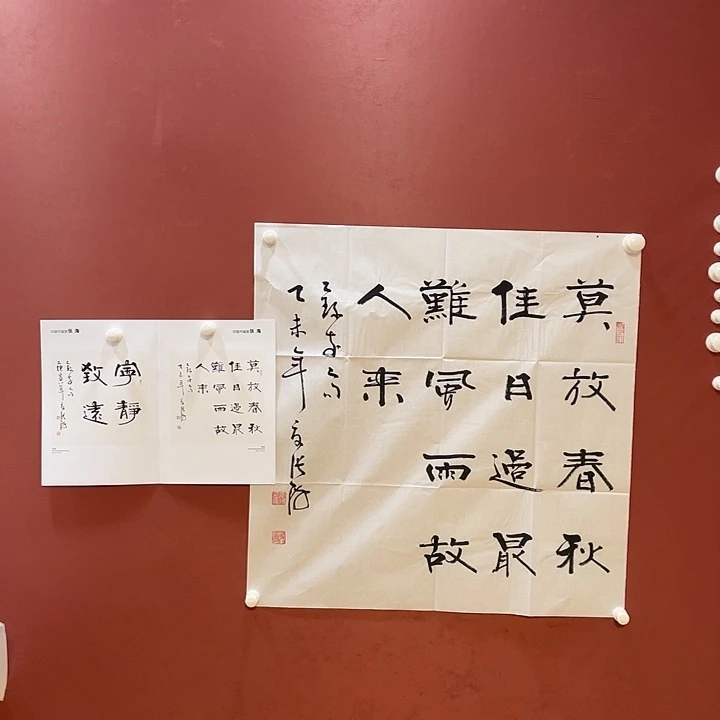 莫放春秋
佳日過最
難風雨故
人来
乙未年
寧靜
致遠
莫放春秋
佳日過最
難風雨故
人来
乙未年